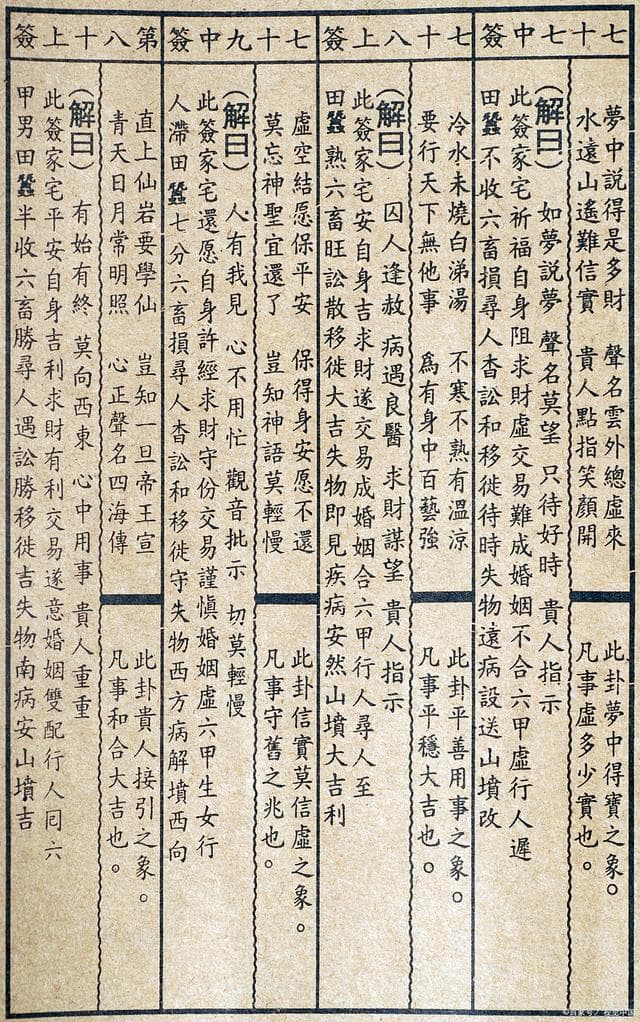 七十七中簽
夢中說得是多財　聲名雲外總虛來
水遠山遙難信實　貴人點指笑顏開
此卦夢中得寶之象。
凡事虛多少實也。
(解曰)　如夢說夢　聲名莫望　只待好時　貴人指示
此簽家宅祈福自身阻求財虛交易難成婚姻不合六甲虛行人遲
田蠶不收六畜損尋人杳訟和移徙待時失物遠病設送山墳改
七十八上簽
冷水未燒白涕湯　不寒不熟有溫涼
要行天下無他事　爲有身中百藝強
此卦平善用事之象。
凡事平穩大吉也。
(解曰)　囚人逢赦　病遇良醫　求財謀望　貴人指示
此簽家宅安自身吉求財遂交易成婚姻合六甲行人尋人至
田蠶熟六畜旺訟散移徙大吉失物即見疾病安然山墳大吉利
七十九中簽
虛空結愿保平安　保得身安愿不還
莫忘神聖宜還了　豈知神語莫輕慢
此卦信實莫信虛之象。
凡事守舊之兆也。
(解曰)　人有我見　心不用忙　觀音批示　切莫輕慢
此簽家宅還愿自身許經求財守份交易謹慎婚姻虛六甲生女行
人滯田蠶七分六畜損尋人杳訟和移徙守失物西方病解墳西向
第八十上簽
直上仙岩要學仙　豈知一旦帝王宣
青天日月常明照　心正聲名四海傳
此卦貴人接引之象。
凡事和合大吉也。
(解曰)　有始有終　莫向西東　心中用事　貴人重重
此簽家宅平安自身吉利求財有利交易遂意婚姻雙配行人囘六
甲男田蠶半收六畜勝尋人遇訟勝移徙吉失物南病安山墳吉